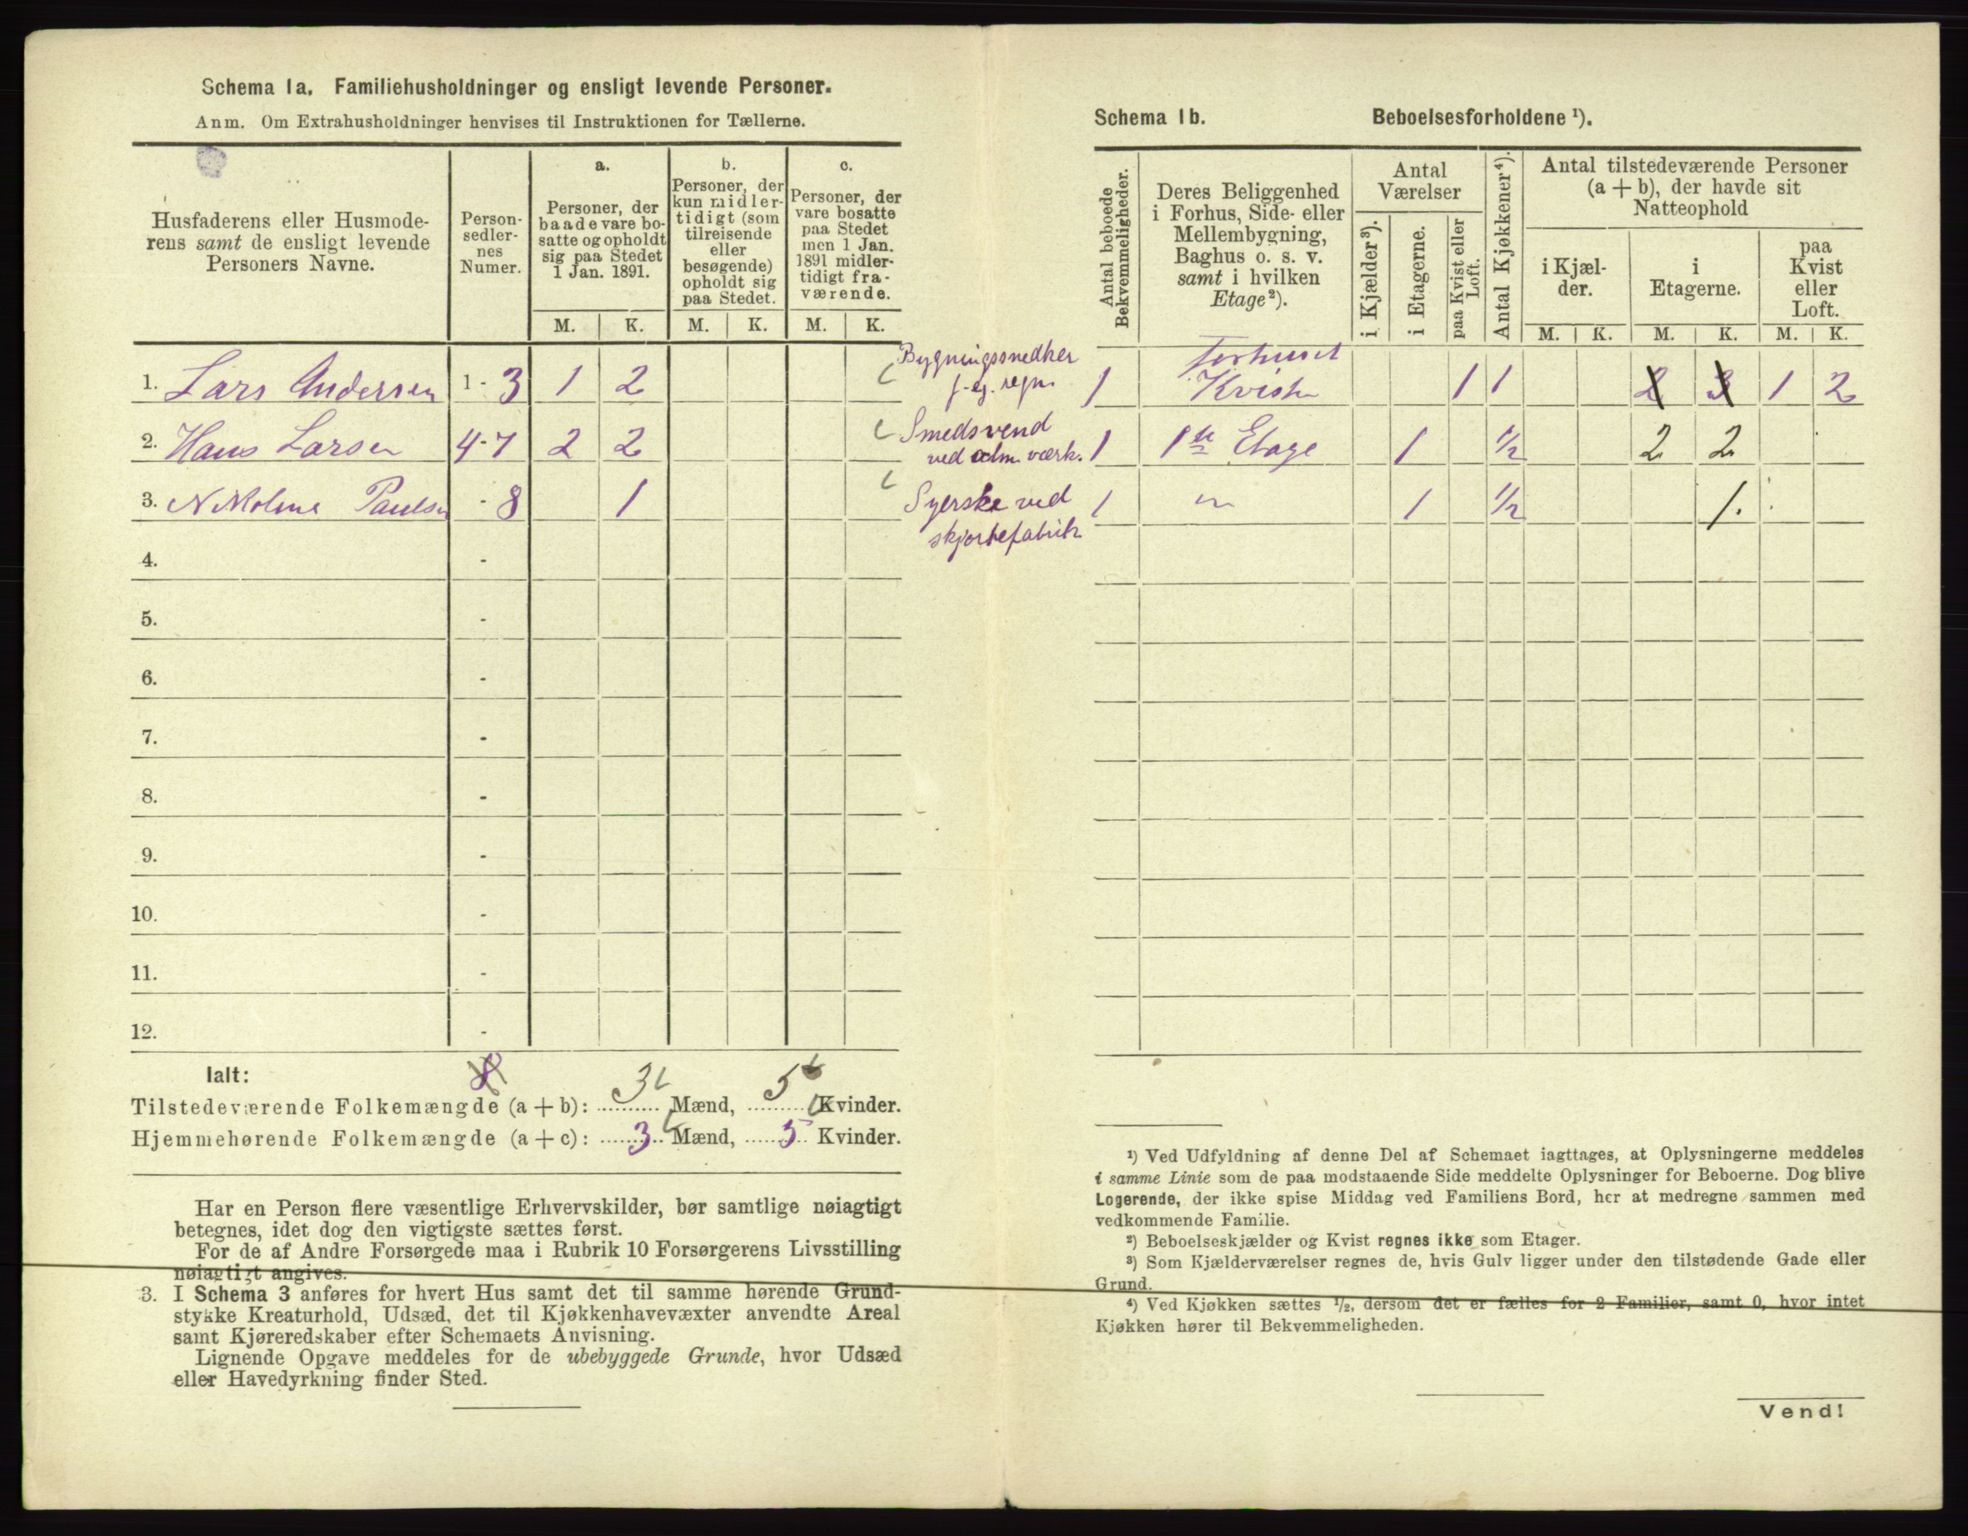 Schema 1a. Familiehusholdninger og ensligt levende Personer.
Anm. Om Extrahusholdninger henvises til Instruktionen for Tællerne.
Husfaderens eller Husmode-
rens samt de ensligt levende
Personers Navne.
Person-
sedler-
nes
Numer.
a.
Personer, der
baade vare bo-
satte og opholdt
sig paa Stedet
1 Jan. 1891.
b.
Personer, der
kun midler-
tidigt (som
tilreisende
eller
besøgende)
opholdt sig
paa Stedet.
c.
Personer, der
vare bosatte
paa Stedet
men 1 Jan.
1891 midler-
tidigt fra-
værende.
M. K. M. K. M. K.
1. Lars Andersen 1 - 3 1 2
2. Hans Larsen 4-7 2 2
3. Nikoline Paulsen - 8 1
4. -
5. -
6. -
7. -
8. -
9. -
10. -
11. -
12. -
Ialt: 8
Tilstedeværende Folkemængde (a + b): 3 Mænd, 5 Kvinder.
Hjemmehørende Folkemængde (a + c): 3 Mænd, 5 Kvinder.
Har en Person flere væsentlige Erhvervskilder, bør samtlige nøiagtigt
betegnes, idet dog den vigtigste sættes først.
For de af Andre Forsørgede maa i Rubrik 10 Forsørgerens Livsstilling
nøiagtigt angives.
3. I Schema 3 anføres for hvert Hus samt det til samme hørende Grund-
stykke Kreaturhold, Udsæd, det til Kjøkkenhavevæxter anvendte Areal
samt Kjøreredskaber efter Schemaets Anvisning.
Lignende Opgave meddeles for de ubebyggede Grunde, hvor Udsæd
eller Havedyrkning finder Sted.
Schema 1b. Beboelsesforholdene ¹).
Antal beboede
Bekvemmeligheder.
Deres Beliggenhed
i Forhus, Side- eller
Mellembygning,
Baghus o. s. v.
samt i hvilken
Etage²).
Antal
Værelser
i Kjælder³).
i Etagerne.
paa Kvist eller
Loft.
Antal Kjøkkener⁴).
Antal tilstedeværende Personer
(a + b), der havde sit
Natteophold
i Kjæl-
der.
i
Etagerne.
paa
Kvist
eller
Loft.
M. K. M. K. M. K.
Bygningssnedker
f. eg. regn.
1 Forhuset
Kvisten 1 1 2 3 1 2
Smedsvend
ved alm. værk.
1 1ste Etage 1 1/2 2 2
Syerske ved
skjortefabrik
1 " 1 1/2 1.
¹) Ved Udfyldning af denne Del af Schemaet iagttages, at Oplysningerne meddeles
i samme Linie som de paa modstaaende Side meddelte Oplysninger for Beboerne. Dog blive
Logerende, der ikke spise Middag ved Familiens Bord, her at medregne sammen med
vedkommende Familie.
²) Beboelseskjælder og Kvist regnes ikke som Etager.
³) Som Kjælderværelser regnes de, hvis Gulv ligger under den tilstødende Gade eller
Grund.
⁴) Ved Kjøkken sættes ½, dersom det er fælles for 2 Familier, samt 0, hvor intet
Kjøkken hører til Bekvemmeligheden.
Vend!